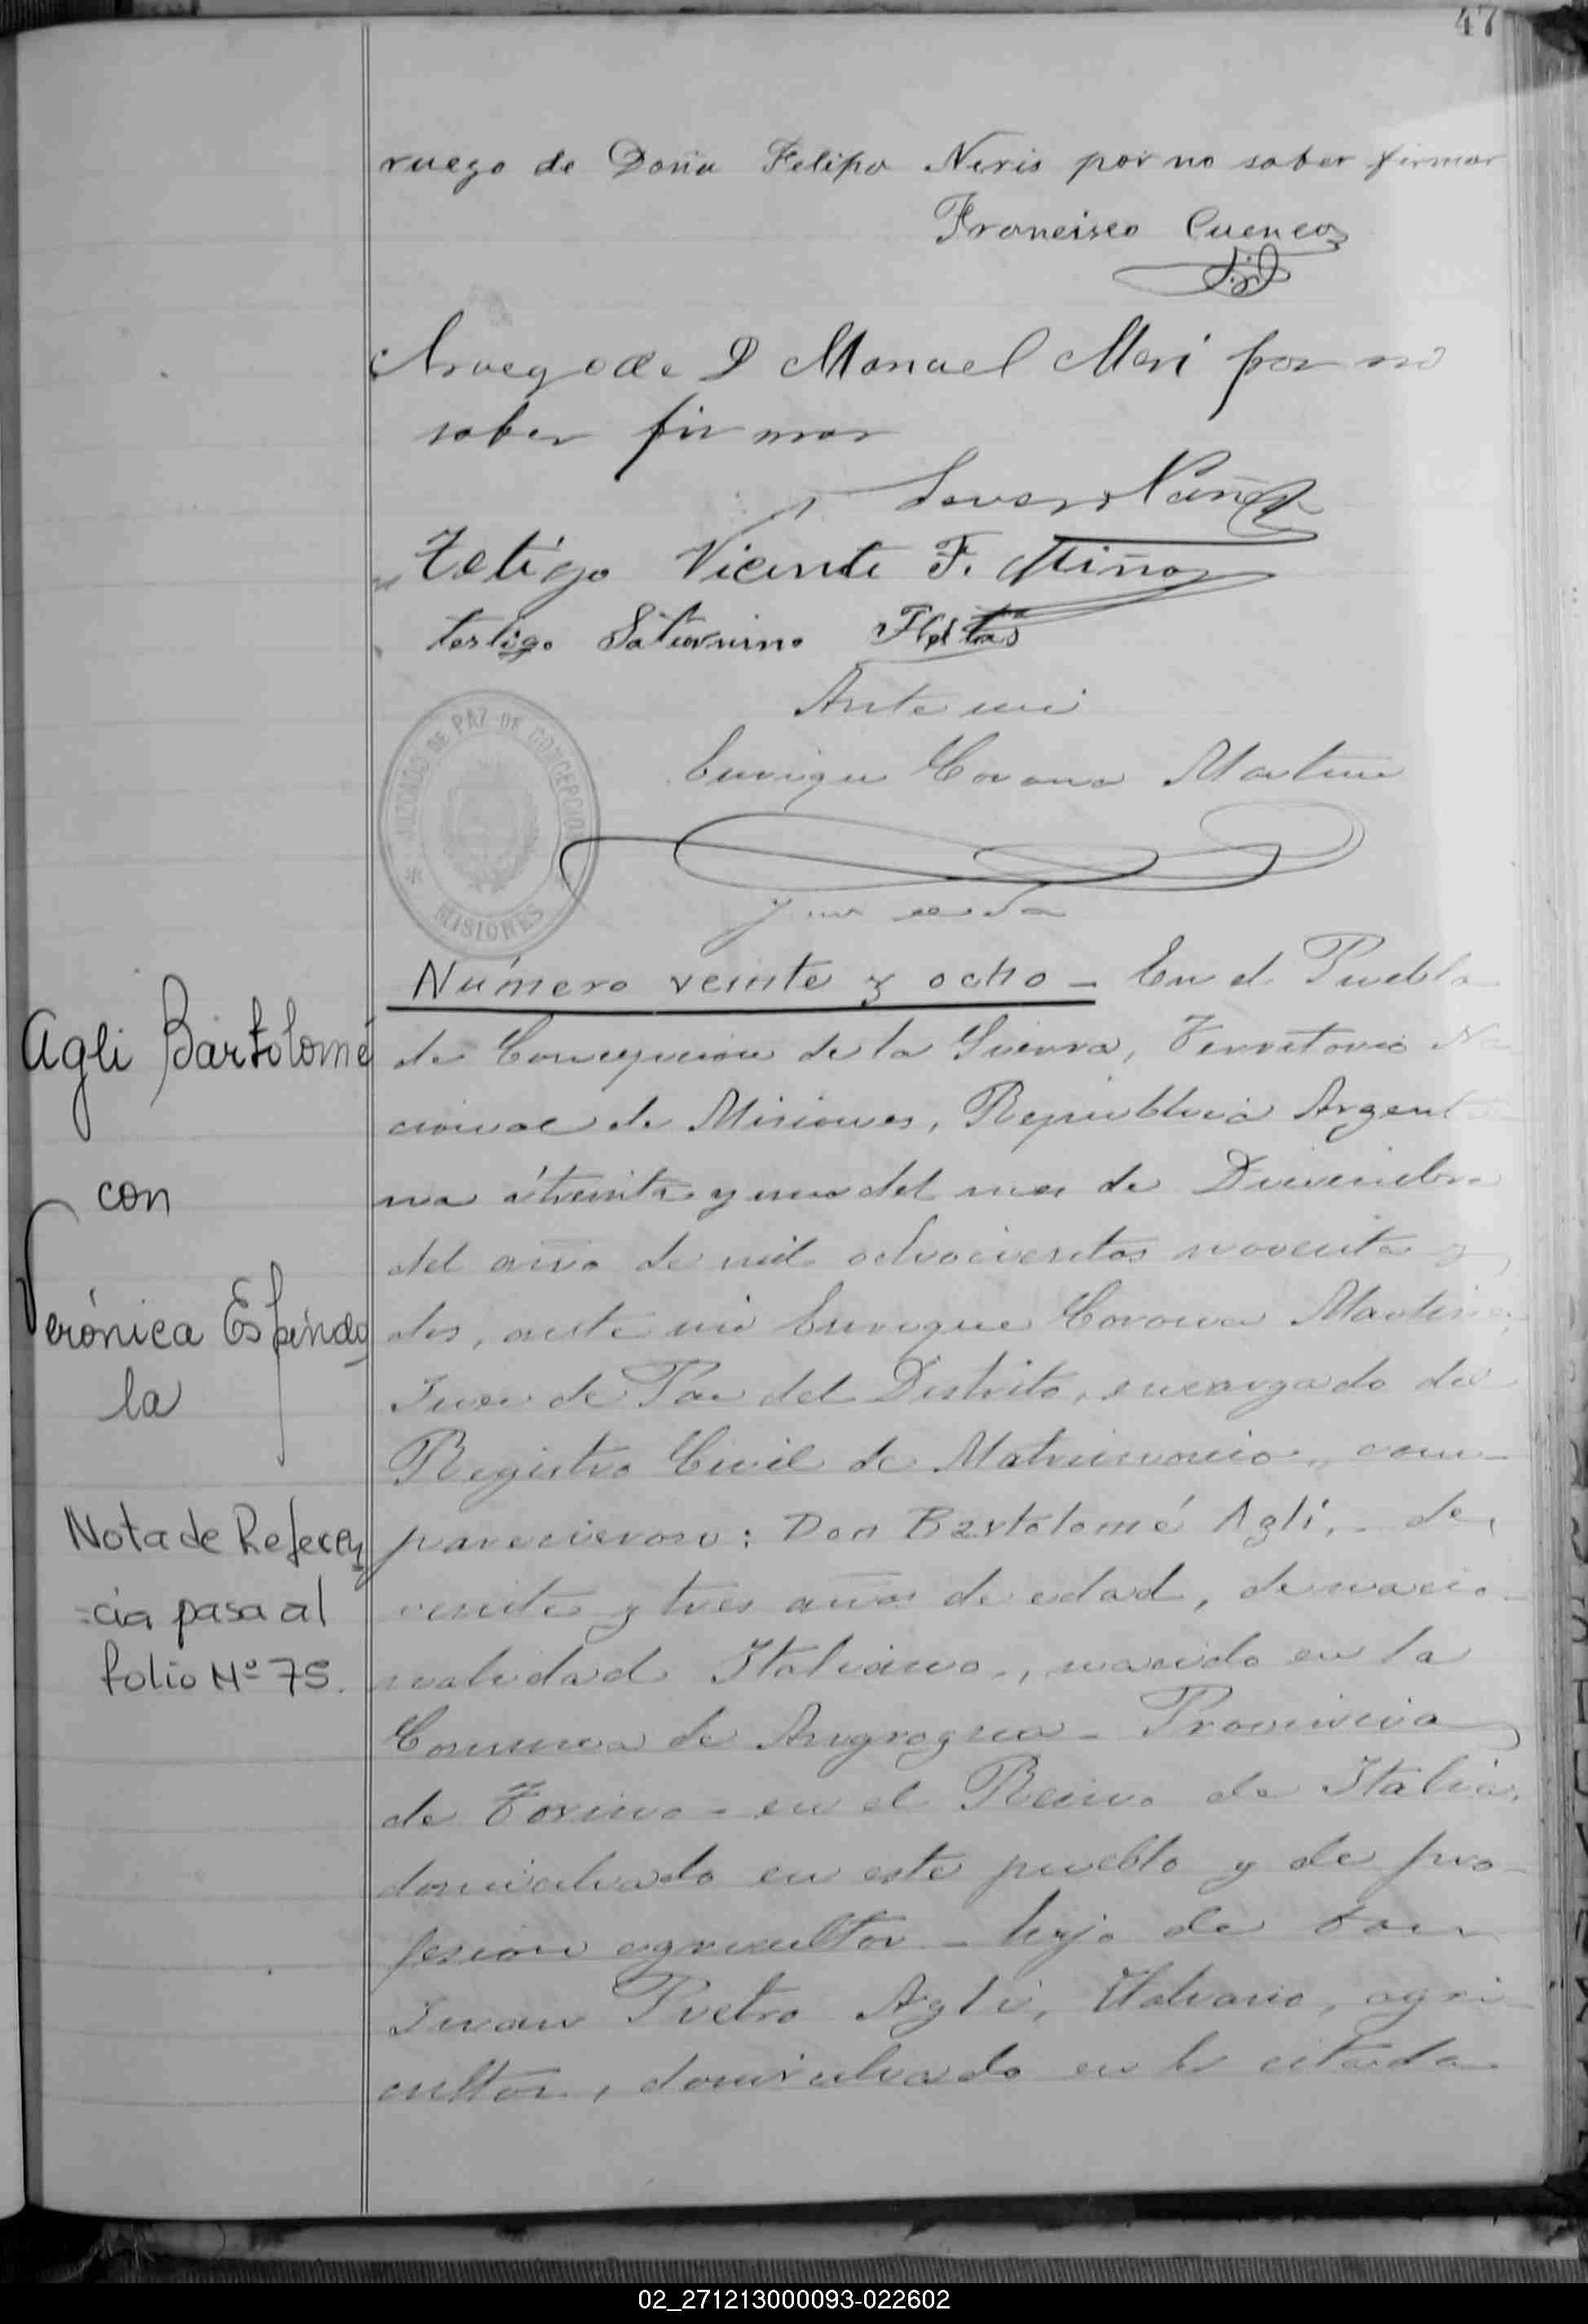 47
ruego de Doña Felipa Neris por no saber firmar
Francisco Cuenca
Aruego de D Manuel Meri por no
saber firmar
Nuñez
Tetigo Vicente F. Miño
testigo Saturnino
Ante mi
Enrique Corona Martinez
JUZGADO DE PAZ DE CONCEPCION
MISIONES
Número veinte y ocho - En el Pueblo
de Concepcion de la Sierra, Territorio Na
cional de Misiones, Republica Argenti
na á treinta y uno del mes de Diciembre
del año de mil ochocientos noventa y
dos, ante mi Enrique Corona Martinez,
Juez de Paz del Distrito, encargado del
Registro Civil de Matrimonio, com-
parecieron: Don Bartolomé Agli, - de
veinte y tres años de edad, de nacio-
nalidad Italiano, nacido en la
Comuna de Angrogna - Provincia
de Torino - en el Reino de Italia,
domiciliado en este pueblo y de pro-
fesion agricultor - hijo de Don
Juan Pietro Agli, Italiano, agri-
cultor, domiciliado en la citada
Agli Bartolomé
con
Verónica Espíndo
la
Nota de Referen
=cia pasa al
folio Nº 75.
02_271213000093-022602